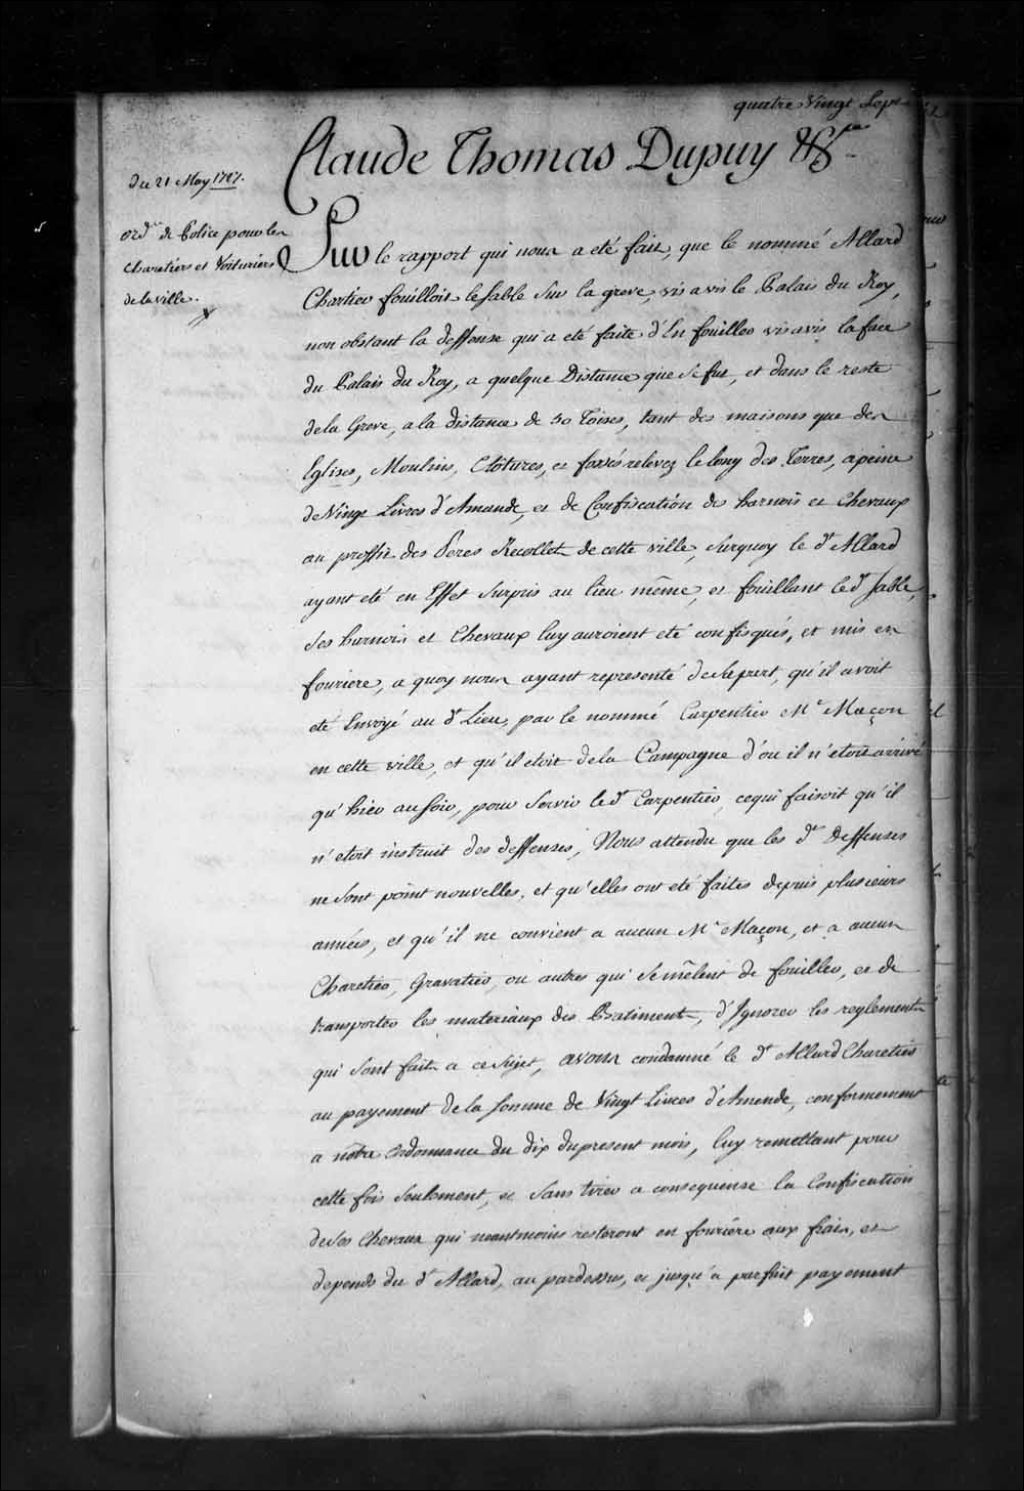 quatre Vingt Sept
Claude Thomas Dupuy &ca
Du 21 May 1727.
Ord.ce de Police pour les
Charetiers et Voituriers
de la ville.
Sur le rapport qui nous a eté fait, que le nommé Allard
Chartier fouilloit le sable sur la greve, vis a vis le Palais du Roy,
non obstant la deffense qui a eté faite d'En fouiller vis avis la face
du Palais du Roy, a quelque Distance que se fut, et dans le reste
de la Greve, a la distance de 50 Toises, tant des maisons que des
Eglises, Moulins, Clôtures, et fossés relevez le long des Terres, a peine
de Vingt Livres d'Amande, et de Confiscation des harnois et chevaux
au proffit des Peres Recollets de cette ville, surquoy le d.t Allard
ayant eté en Effet surpris au lieu même, et fouillant led.t sable,
ses harnois et Chevaux luy auroient eté confisqués, et mis en
fouriere, a quoy nous ayant representé de sa part, qu'il avoit
eté Envoyé au d.t Lieu, par le nommé Carpentier M.e Maçon
en cette ville, et qu'il etoit de la Campagne d'ou il n'etoit arrivé
qu'hier au soir, pour servir led.t Carpentier, cequi faisoit qu'il
n'etoit instruit des deffenses, Nous attendu que les d.tes Deffenses
ne sont point nouvelles, et qu'elles ont eté faites depuis plusieurs
années, et qu'il ne convient a aucun M.e Maçon, et a aucun
Charetier, Gravatier, ou autres qui se mêlent de fouiller, et de
transporter les materiaux des Batiments, d'Ignorer les reglements
qui sont faits a ce sujet, avons condamné le d.t Allard Charetier
au payement de la somme de Vingt Livres d'Amende, conformement
a nôtre ordonnance du dix du present mois, luy remettant pour
cette fois seulement, et sans tirer a consequense la Confiscation
de ses Chevaux qui neantmoins resteront en fouriere aux frais, et
depends du d.t Allard, au pardessus, et jusqu'a parfait payement